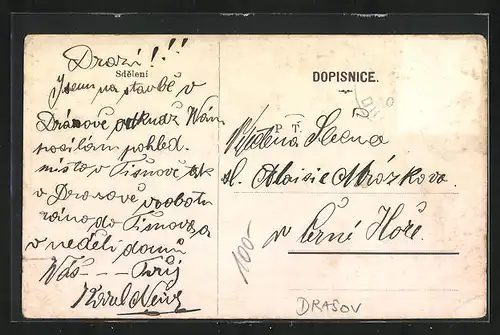 Drazí!!!
Sdělení
Jsem na stavbě v
Drásově odkudž Vám
posílám pohled.
místo v Tišnově tak
v Drasově v sobotu
ráno do Tišnova a
v neděli domů
Váš - - - Tvůj
Karel
DOPISNICE.
P. T.
Vážená Slečna
sl. Aloisie Mrázkova
v Černé Hoře.
100-
DRASOV